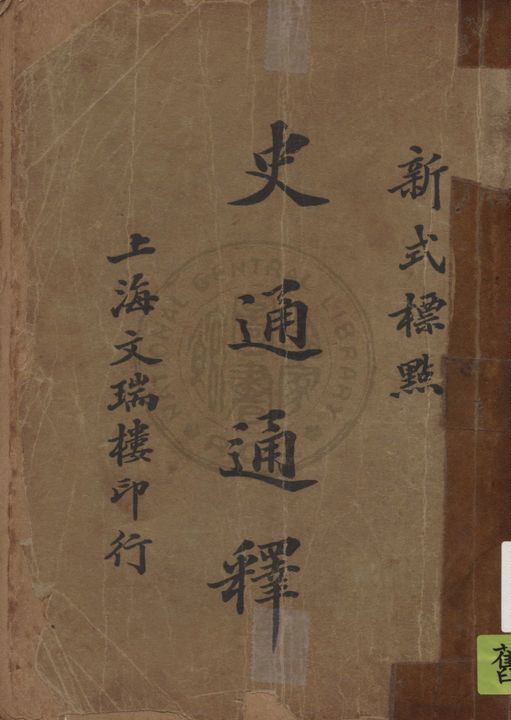 新式標點
史通通釋
上海文瑞樓印行
NATIONAL CENTRAL LIBRARY
舊